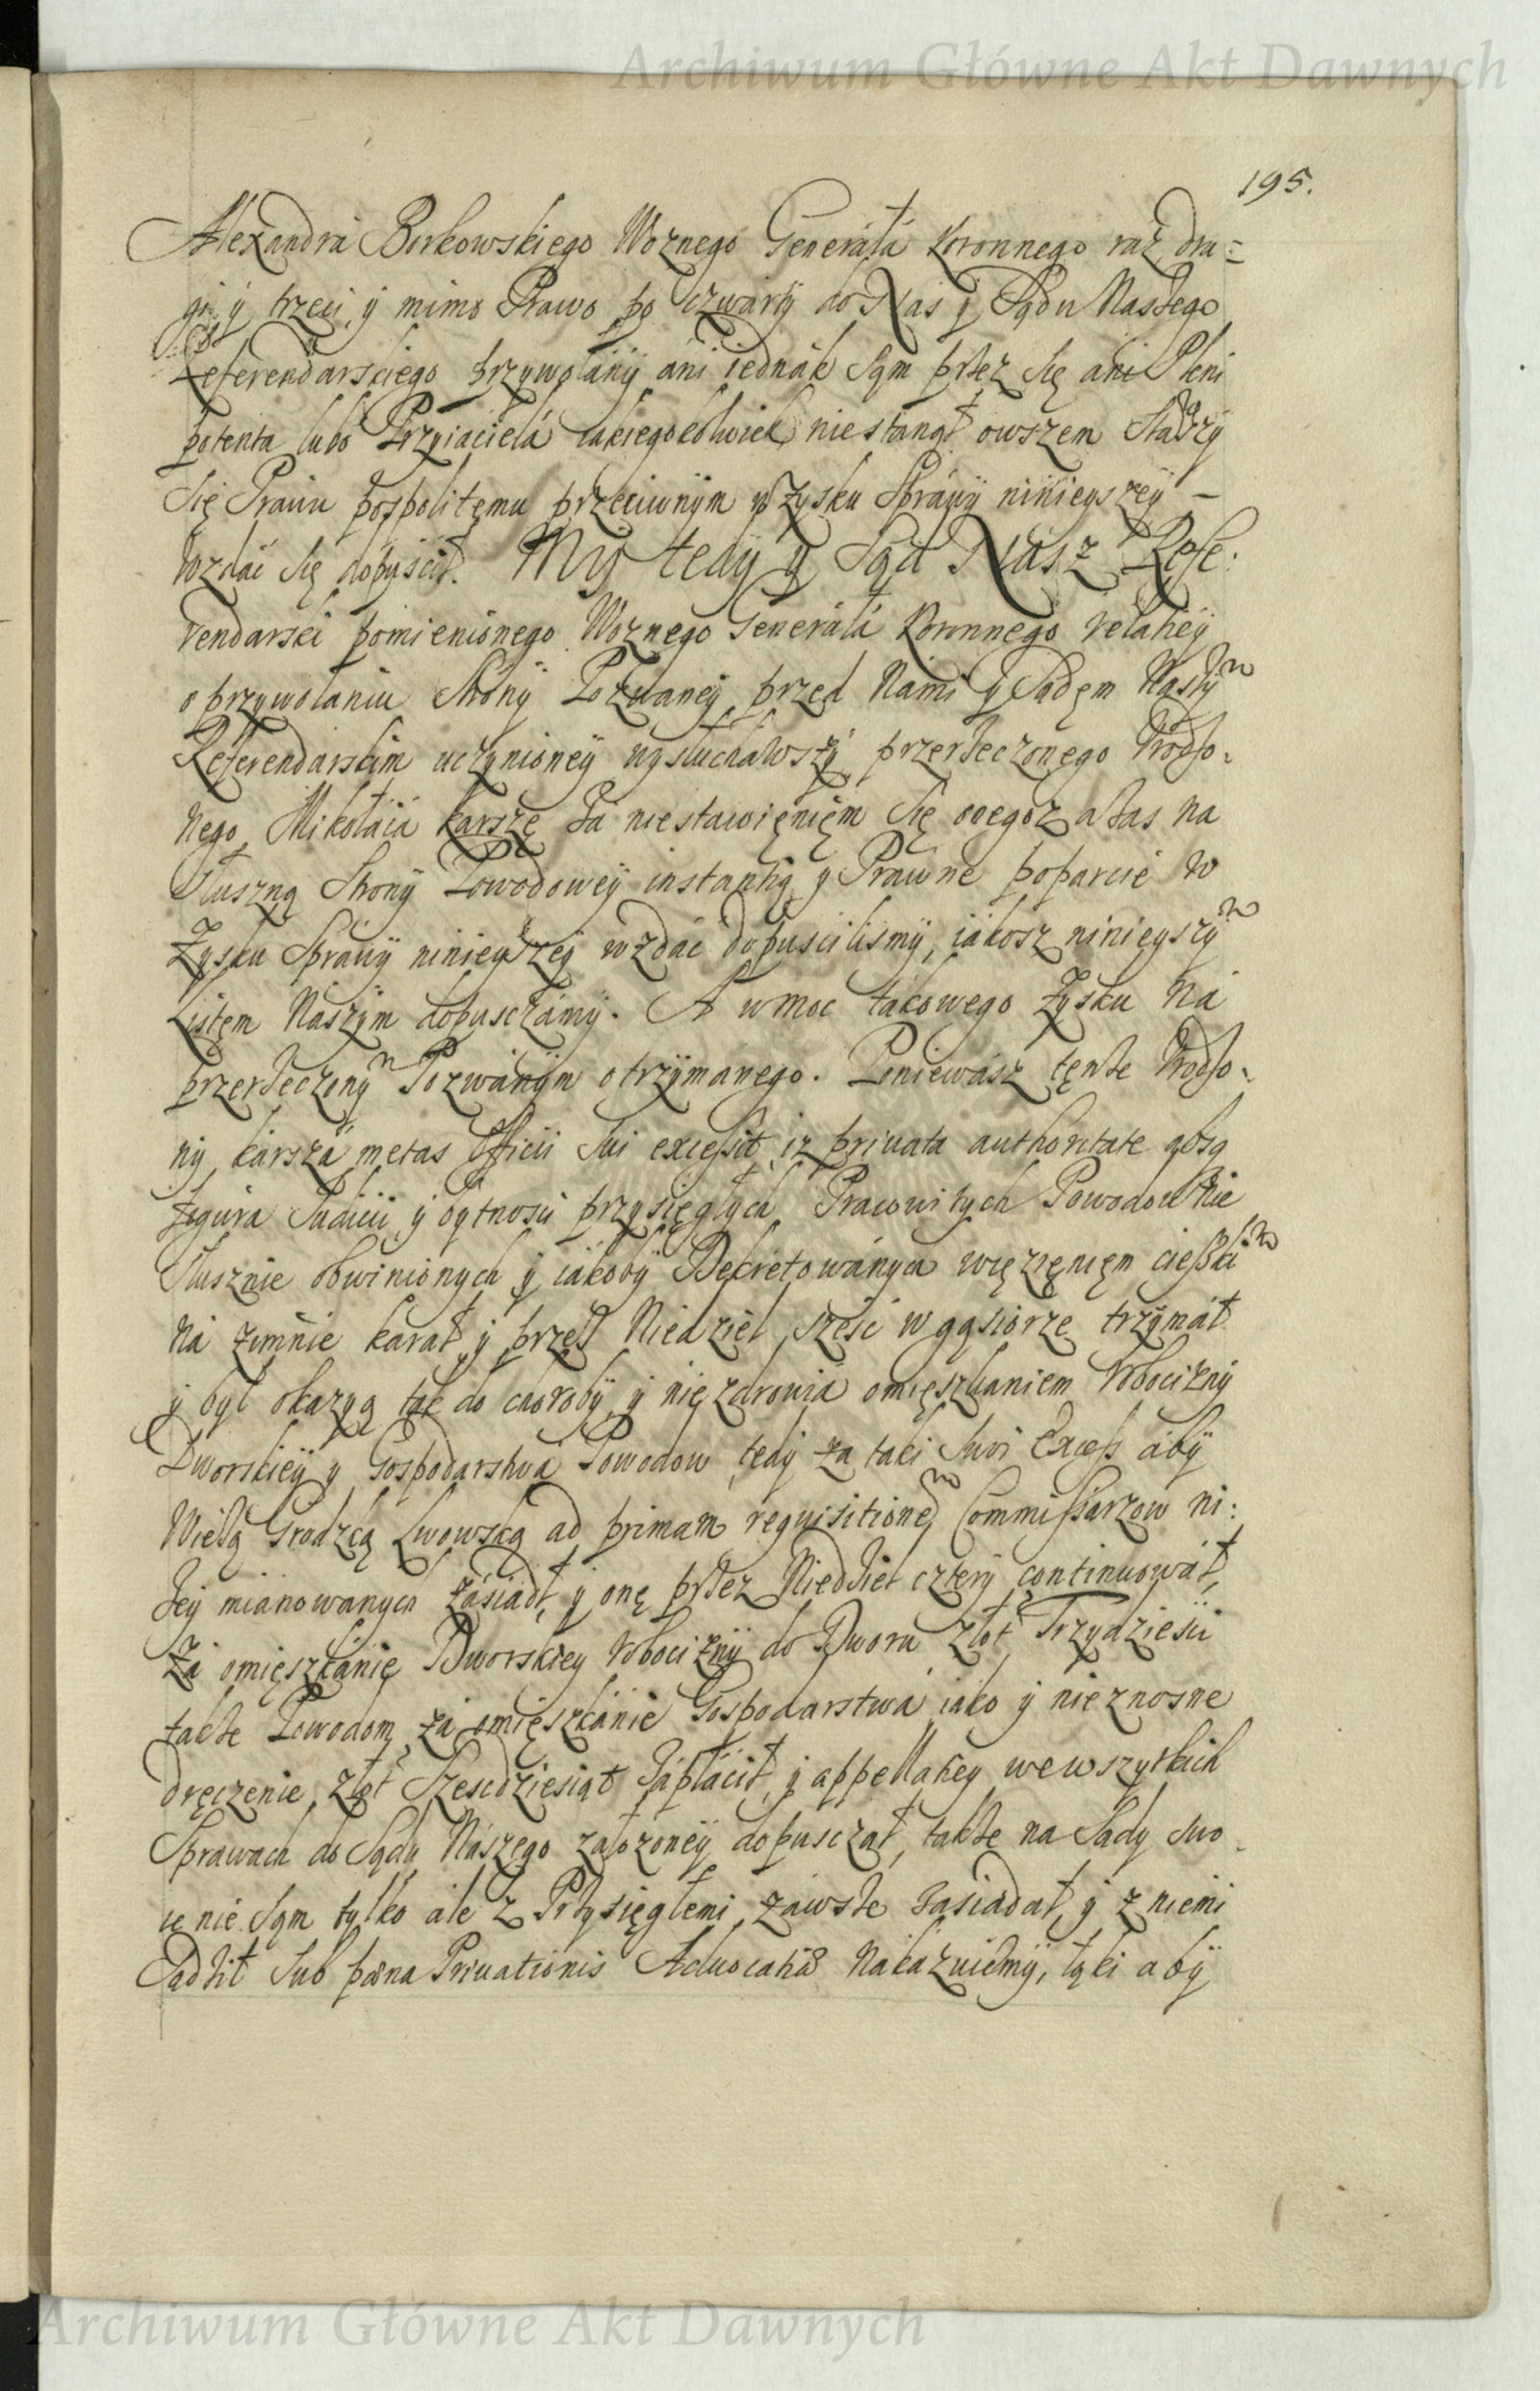 Archiwum Główne Akt Dawnych
195.
Alexandra Borkowskiego Woznego Generała Koronnego raz dru=
gi y trzeci, y mimo Prawo po czwarty do Nas y Sądu Naszego
Referendarskiego przywołany áni iednák sąm przez się ani Pleni
potenta lubo Przyiaciela iakiegokolwiek niestanął owszem stawszy
się Prawu pospolitemu przeciwnym w zysku Sprawy ninieyszey –
wzdáć się dopuścił. My tedy y Sąd Nász Refe:
rendarski pomienionego Woznego Generała Koronnego relatiey
o przywołaniu Strony Pozwaney przed Nami y Sądem Nászym
Referendarskim uczynioney wysłuchawszy przerzeczonego Urodzo:
nego Mikołaia Karszę za niestawięnięm się onegoż a zas na
słuszną Strony Powodowey instantią y Prawne poparcie w
Zysku Sprawy ninieyszey wzdáć dopuscilismy, iákosz ninięyszym
Listęm Nászym dopusczámy. A wmoc tákowego zysku Ná
przerzeczonym Pozwánym otrzymanego. Poniewász tęnze Urodzo:
ny Kársza metas Officii sui excessit, iz privata authoritate absq
figura Judicii y bytnosci przysięgłych Pracowitych Powodow nie
słusznie obwinionych y iakoby Dekretowánych więzięnięm cięszkim
ná zimnie karał y przez Niedziel sześć w gąsiorze trzymáł
y był okazyą tak do choroby y niezdrowia omięszkaniem roboczizny
Dworskiey y Gospodarstwá Powodow, tedy za taki swoi Excess áby
Wieżą Grodzcą Lwowską ad primam requisitionem Commissarzow ni:
zey mianowanych zásiadł, y onę przez Niedziel cztery continuowáł,
zá omięszkánię Dworskiey roboczizny do Dworu złot Trzydziesci
takze Powodom zá omięszkánie Gospodarstwa iáko y nieznosne
dręczenie złot Szescdziesiąt zápłácił, y appellatiey wewszytkich
Sprawach do Sądu Nászego założoney dopusczał, takze na Sądy swo
ie nie sąm tylko ale z Przysięgłemi záwsze zasiadał, y z niemi
Sądził sub pœna Privationis Advocatiæ Nákázuiemy, tąki aby
Archiwum Główne Akt Dawnych